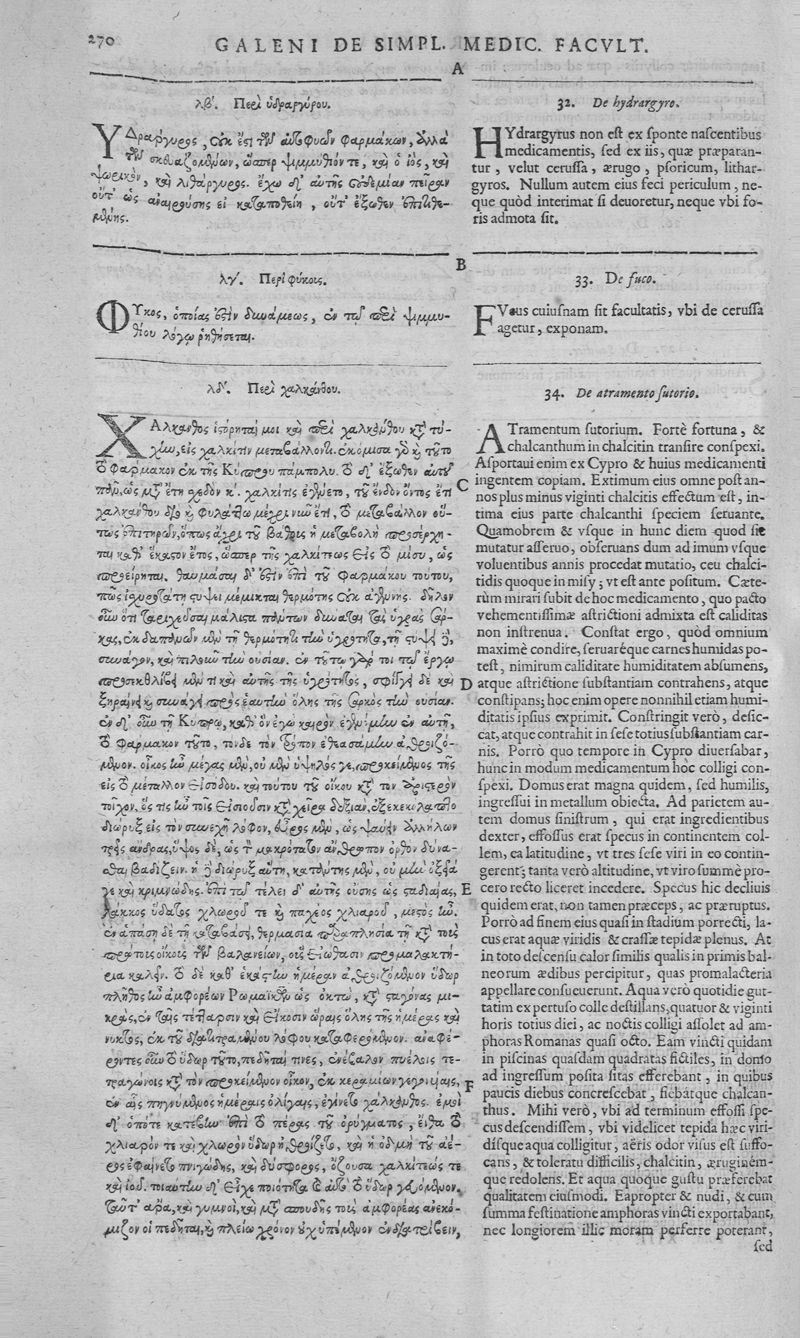 270
GALENI DE SIMPL. MEDIC. FACVLT.
A
λβʹ. Περὶ ὑδραργύρου.
ΥΔραργυρος, οὐκ ἔστι τῶν αὐτοφυῶν φαρμάκων, ἀλλὰ
τῶν σκευαζομένων, ὥσπερ ψιμμύθιόν τε, καὶ ὁ ἰὸς, καὶ
ψωρικὸν, καὶ λιθάργυρος. ἔχω δ' αὐτῆς οὐδεμίαν πεῖραν
οὔτ' ὡς ἀναιρούσης εἰ καταποθείη, οὔτ' ἔξωθεν ἐπιτιθε-
μένης.
32. De hydrargyro.
HYdrargyrus non est ex sponte nascentibus
medicamentis, sed ex iis, quæ præparan-
tur, velut cerussa, ærugo, psoricum, lithar-
gyros. Nullum autem eius feci periculum, ne-
que quòd interimat si deuoretur, neque vbi fo-
ris admota sit.
B
λγʹ. Περὶ φύκους.
ΦΥκος, ὁποίας ἐστὶν δυνάμεως, ἐν τῷ περὶ ψιμμυ-
θίου λόγῳ ῥηθήσεται.
33. De fuco.
FVcus cuiusnam sit facultatis, vbi de cerussa
agetur, exponam.
λδʹ. Περὶ χαλκάνθου.
ΧΑλκανθος ἱστόρηταί μοι καὶ περὶ χαλκάνθου κατὰ τύ-
χην, εἰς χαλκῖτιν μεταβάλλοντι. ἐκόμισα γὰρ καὶ τοῦτο
τὸ φάρμακον ἐκ τῆς Κύπρου πάμπολυ. τὸ δ' ἔξωθεν αὐτοῦ
πᾶν, ὡς μετὰ ἔτη σχεδὸν κʹ. χαλκῖτις ἐγένετο, τοῦ ἔνδον ὄντος ἔτι
χαλκάνθου διὸ καὶ φυλάττω μέχρι νῦν ἔτι, τὸ μεταβάλλον οὕ-
τως ἐπιτηρῶν, ὅπως ἄχρι τοῦ βάθους ἡ μεταβολὴ προσέρχη-
ται καθ' ἕκαστον ἔτος, ὥσπερ τῆς χαλκίτεως εἰς τὸ μίσυ, ὡς
προείρηται. θαυμάσαι δ' ἐστὶν ἐπὶ τοῦ φαρμάκου τούτου,
πῶς ἰσχυροτάτη στύψει μέμικται θερμότης οὐκ ἀγεννής. δῆλον
οὖν ὅτι ταριχεῦσαι μάλιστα πάντων δύναται τὰς ὑγρὰς σάρ-
κας, ἐκδαπανῶν μὲν τῇ θερμότητι τὴν ὑγρότητα, τῇ στύψει δὲ,
συνάγον, καὶ πιλοῦν τὴν οὐσίαν. ἐν τούτῳ γάρ τοι τῷ ἔργῳ
προσεκθλίβει μέν τι καὶ αὐτῆς τῆς ὑγρότητος, σφίγγει δὲ καὶ
ξηραίνει καὶ συνάγει πρὸς ἑαυτὴν ὅλης τῆς σαρκὸς τὴν οὐσίαν.
ἐν δ' οὖν τῇ Κύπρῳ, καθ' ὃν ἐγὼ καιρὸν ἐγενόμην ἐν αὐτῇ,
τὸ φάρμακον τοῦτο, τόνδε τὸν τρόπον ἐθεασάμην ἀθροιζό-
μενον. οἶκος ἦν μέγας μὲν, οὐ μὴν ὑψηλός γε, προκείμενος τῆς
εἰς τὸ μέταλλον εἰσόδου. κατὰ τούτου τοῦ οἴκου κατὰ τὸν ἀριστερὸν
τοῖχον, ὅς τις ἦν τοῖς εἰσιοῦσιν κατὰ χεῖρα δεξιὰν, ἐξεκεκόλαπτο
διώρυξ εἰς τὸν συνεχῆ λόφον, εὖρος μὲν, ὡς ψαύειν ἀλλήλων
τρεῖς ἄνδρας, ὕψος δὲ, ὡς τὸν μακρότατον ἄνθρωπον ὀρθὸν δύνα-
σθαι βαδίζειν. ἦν δὲ ἡ διώρυξ αὕτη, κατάντης μὲν, οὐ μὴν ὀξεῖά
γε καὶ κρημνώδης. ἐπὶ τῷ τέλει δ' αὐτῆς οὔσης ὡς σταδιαίας,
λάκκος ὕδατος χλωροῦ τε καὶ παχέος χλιαροῦ, μεστὸς ἦν.
ἐν ἁπάσῃ δὲ τῇ καταβάσει, θερμασία παραπλησία τῇ κατὰ τοὺς
πρώτους οἴκους τῶν βαλανείων, οὓς εἰώθασιν προμαλακτή-
ρια καλεῖν. τὸ δὲ καθ' ἑκάστην ἡμέραν ἀθροιζόμενον ὕδωρ
πλῆθος ἦν ἀμφορέων Ρωμαϊκῶν ὡς ὀκτὼ, κατὰ σταγόνας μι-
κρὰς, ἐν ταῖς τέτταρσιν καὶ εἴκοσιν ὥραις ὅλης τῆς ἡμέρας καὶ
νυκτὸς, ἐκ τοῦ διατετραμένου λόφου καταφερόμενον. ἀναφέ-
ροντες οὖν τὸ ὕδωρ τοῦτο, πεδῆταί τινες, ἐνέβαλον πυέλοις τε-
τραγώνοις κατὰ τὸν προκείμενον οἶκον, ἐκ κεραμίων γεγονυίαις,
ἐν αἷς πηγνύμενος ἡμέραις ὀλίγαις, ἐγίνετο χάλκανθος. ἐμοὶ
δ' ὁπότε κατέβην ἐπὶ τὸ πέρας τοῦ ὀρύγματος, ἔνθα τὸ
χλιαρόν τε καὶ χλωρὸν ὕδωρ ἠθροίζετο, καὶ ἡ ὀδμὴ τοῦ ἀέ-
ρος ἐφαίνετο πνιγώδης, καὶ δύσφορος, ὄζουσα χαλκίτεώς τε
καὶ ἰοῦ. τοιαύτην δ' εἶχε ποιότητα καὶ αὐτὸ τὸ ὕδωρ γευόμενον.
ταῦτ' ἄρα, καὶ γυμνοὶ, καὶ μετὰ σπουδῆς τοὺς ἀμφορέας ἀνεκό-
μιζον οἱ πεδῆται, καὶ πλείω χρόνον οὐχ ὑπέμενον ἐνδιατρίβειν,
34. De atramento sutorio.
ATramentum sutorium. Fortè fortuna, &
chalcanthum in chalcitin transire conspexi.
Asportaui enim ex Cypro & huius medicamenti
C
ingentem copiam. Extimum eius omne post an-
nos plus minus viginti chalcitis effectum est, in-
tima eius parte chalcanthi speciem seruante.
Quamobrem & vsque in hunc diem quod sic
mutatur asseruo, obseruans dum ad imum vsque
voluentibus annis procedat mutatio, ceu chalci-
tidis quoque in misy; vt est ante positum. Cæte-
rùm mirari subit de hoc medicamento, quo pacto
vehementissimæ astrictioni admixta est caliditas
non instrenua. Constat ergo, quòd omnium
maximè condire, seruaréque carnes humidas po-
test, nimirum caliditate humiditatem absumens,
D
atque astrictione substantiam contrahens, atque
constipans; hoc enim opere nonnihil etiam humi-
ditatis ipsius exprimit. Constringit verò, desic-
cat, atque contrahit in sese totius substantiam car-
nis. Porrò quo tempore in Cypro diuersabar,
hunc in modum medicamentum hoc colligi con-
spexi. Domus erat magna quidem, sed humilis,
ingressui in metallum obiecta. Ad parietem au-
tem domus sinistrum, qui erat ingredientibus
dexter, effossus erat specus in continentem col-
lem, ea latitudine, vt tres sese viri in eo contin-
gerent; tanta verò altitudine, vt viro summè pro-
cero recto liceret incedere. Specus hic decliuis
E
quidem erat, non tamen præceps, ac præruptus.
Porrò ad finem eius quasi in stadium porrecti, la-
cus erat aquæ viridis & crassæ tepidæ plenus. At
in toto descensu calor similis qualis in primis bal-
neorum ædibus percipitur, quas promalacteria
appellare consueuerunt. Aqua verò quotidie gut-
tatim ex pertuso colle destillans, quatuor & viginti
horis totius diei, ac noctis colligi assolet ad am-
phoras Romanas quasi octo. Eam vincti quidam
in piscinas quasdam quadratas fictiles, in domo
F
ad ingressum posita sitas efferebant, in quibus
paucis diebus concrescebat, fiebatque chalcan-
thus. Mihi verò, vbi ad terminum effossi spe-
cus descendissem, vbi videlicet tepida hæc viri-
dísque aqua colligitur, aëris odor visus est suffo-
cans, & toleratu difficilis, chalcitin, æruginém-
que redolens. Et aqua quoque gustu præferebat
qualitatem eiusmodi. Eapropter & nudi, & cum
summa festinatione amphoras vincti exportabant,
nec longiorem illic moram perferre poterant,
sed